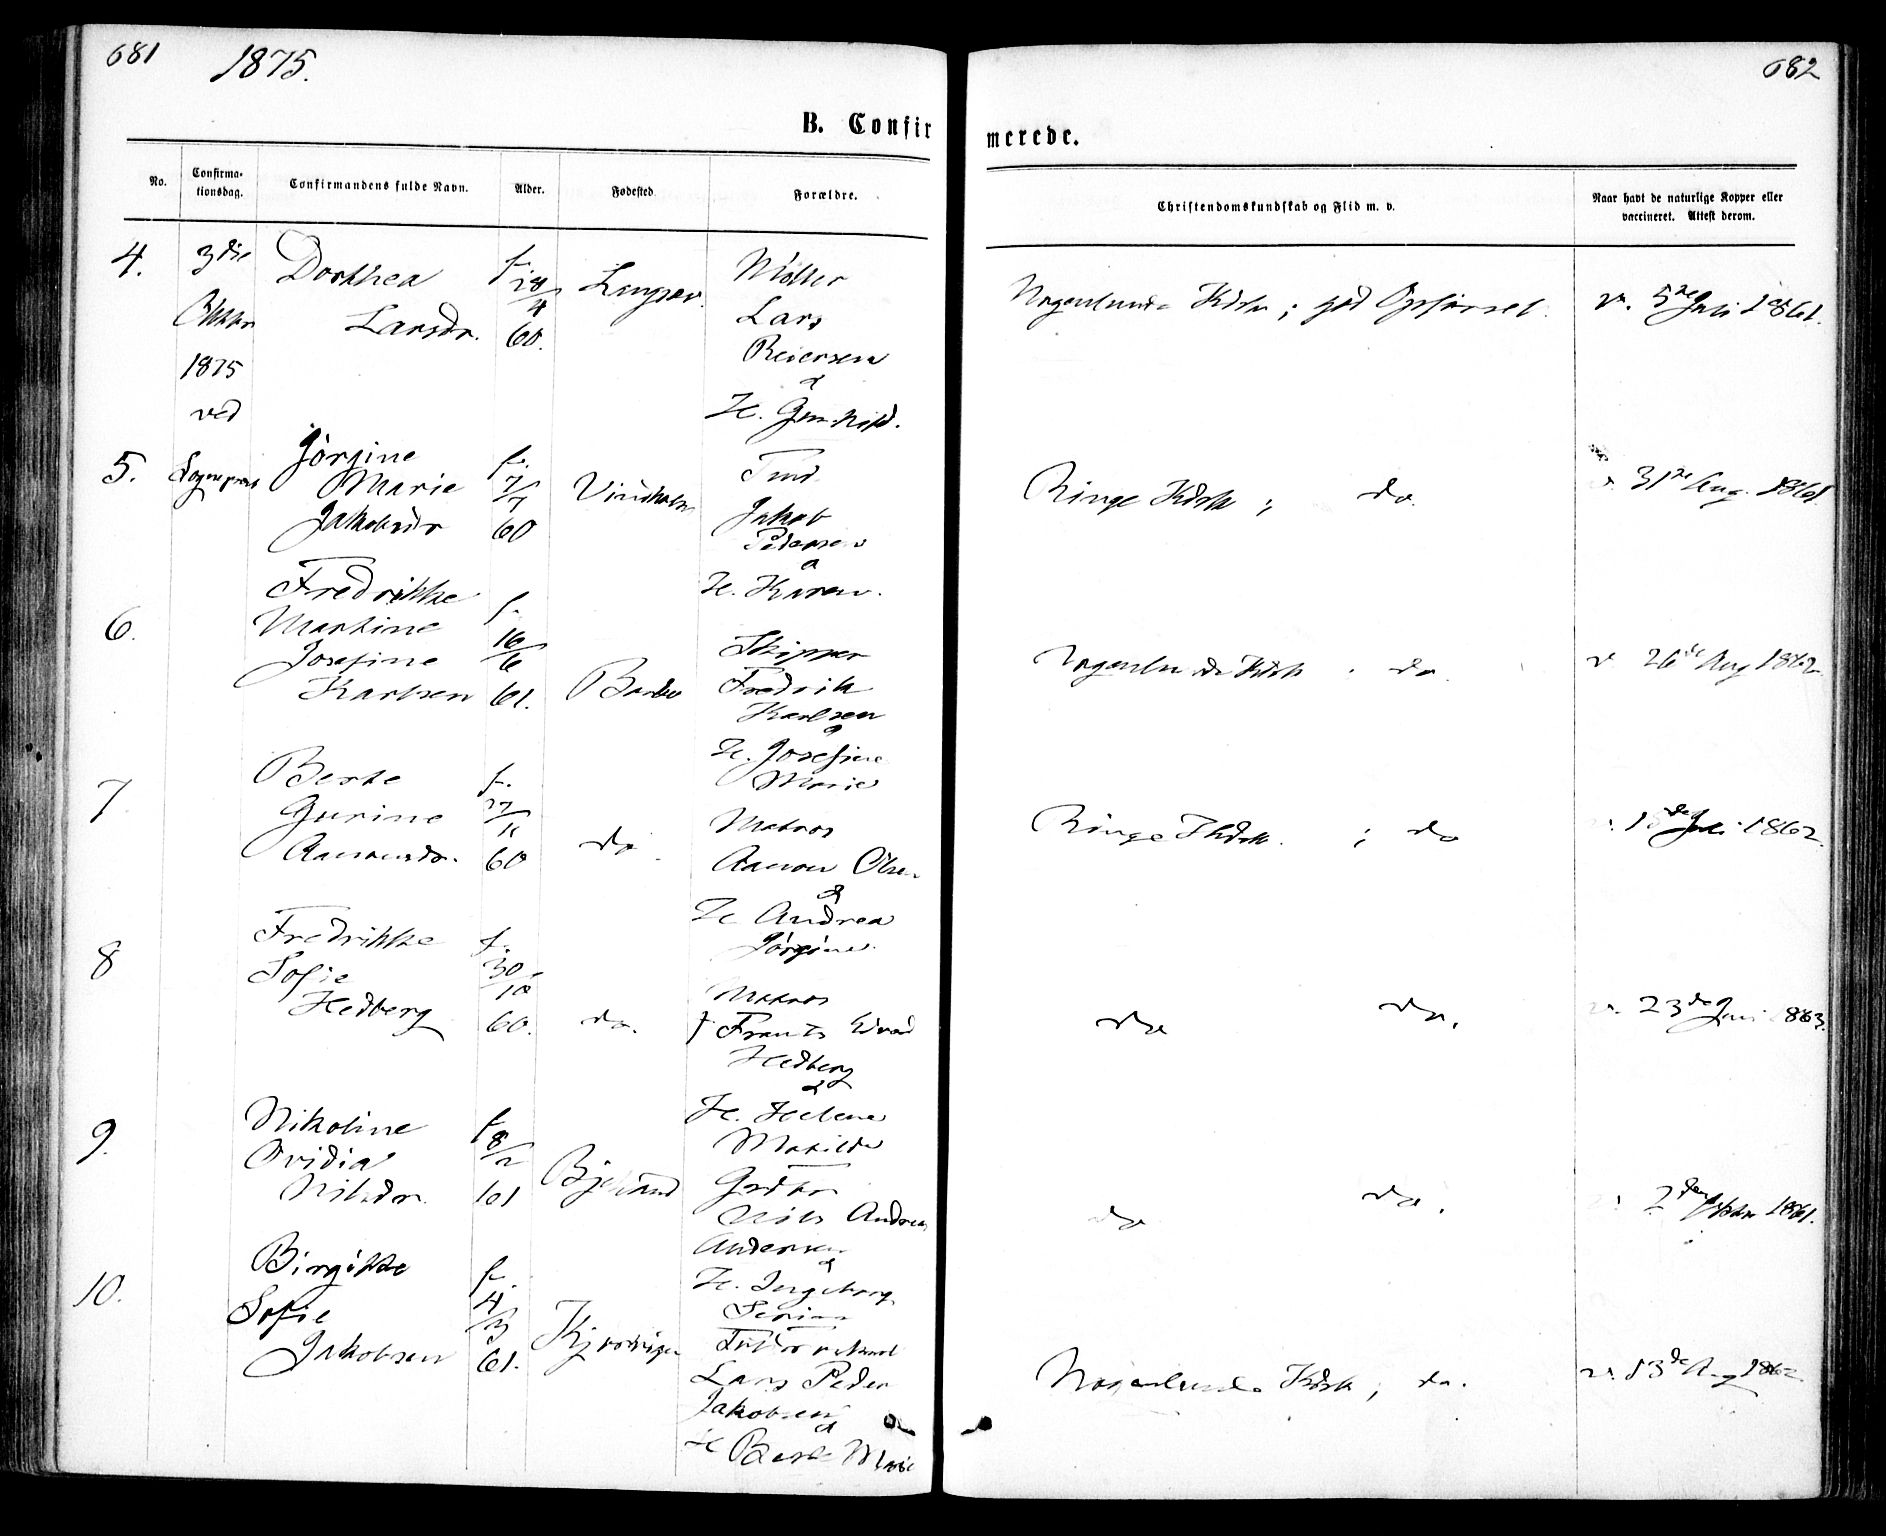 681
1875.
682
B. Confirmerede.
No.
Confirma-
tionsdag.
Confirmandens fulde Navn.
Alder.
Fødested.
Forældre.
Christendomskundskab og Flid m. v.
Naar havt de naturlige Kopper eller
vaccineret. Attest derom.
4.
3die
Oktbr
1875
ved
Sognepræst
Dorthea
Larsdr.
f.
28/4
60.
Langsev.
Møller
Lars
Reiersen
&
H. Gunhild.
Nogenlunde Kdsk; god Opførsel.
v. 5te Juli 1861.
5.
Jørgine
Marie
Jakobsdr
f.
7/7
60
Vindholm
Tmd.
Jakob
Pedersen
&
H. Karen.
Ringe Kdsk; do.
v. 31te Aug. 1861.
6.
Fredrikke
Martine
Josefine
Karlsen
f.
16/6
61.
Barbo
Skipper
Fredrik
Karlsen
&
H. Josefine
Marie
Nogenlunde Kdsk. do.
v. 26de Aug 1862.
7
Berte
Gurine
Aanonsdr.
f.
27/11
60
do.
Matros
Aanon Olsen
&
H. Andrea
Jørgine.
Ringe Kdsk. ; do
de Juli 1862.
8
Fredrikke
Sofie
Hedberg
f.
30/10
60.
do.
Matros
† Frants Edvard
Hedberg
&
H. Helene
Matilde
do do.
v. 23de Juni 1863.
9.
Nikoline
Ovidia
Nilsdr.
f.
8/2
61
Bjelland
Grdbr
Nils Andreas
Andersen
&
H. Ingeborg
Serine
do do.
2den Oktbr 1861.
10.
Birgitte
Sofie
Jakobsen
f.
4/3
61.
Lars Peder
Jakobsen
&
H Berte Marie
Nogenlunde Kdsk; do.
v. 13de Aug 1862.